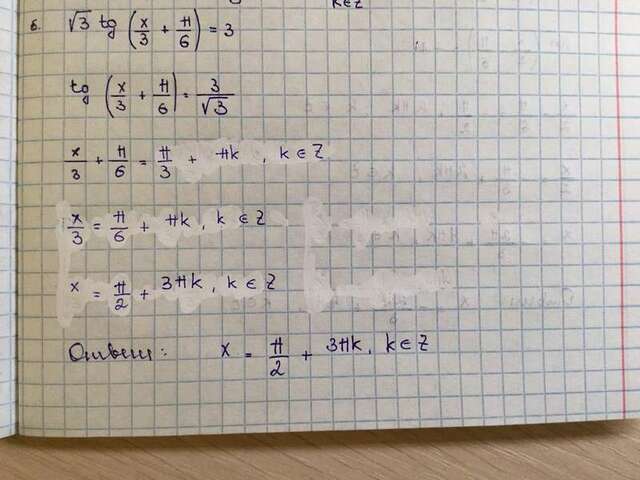 k∈Z
б. √3 tg (x/3 + π/6) = 3
tg (x/3 + π/6) = 3/√3
x/3 + π/6 = π/3 + πk, k ∈ Z
x/3 = π/6 + πk, k ∈ Z
x = π/2 + 3πk, k ∈ Z
Ответ: x = π/2 + 3πk, k ∈ Z